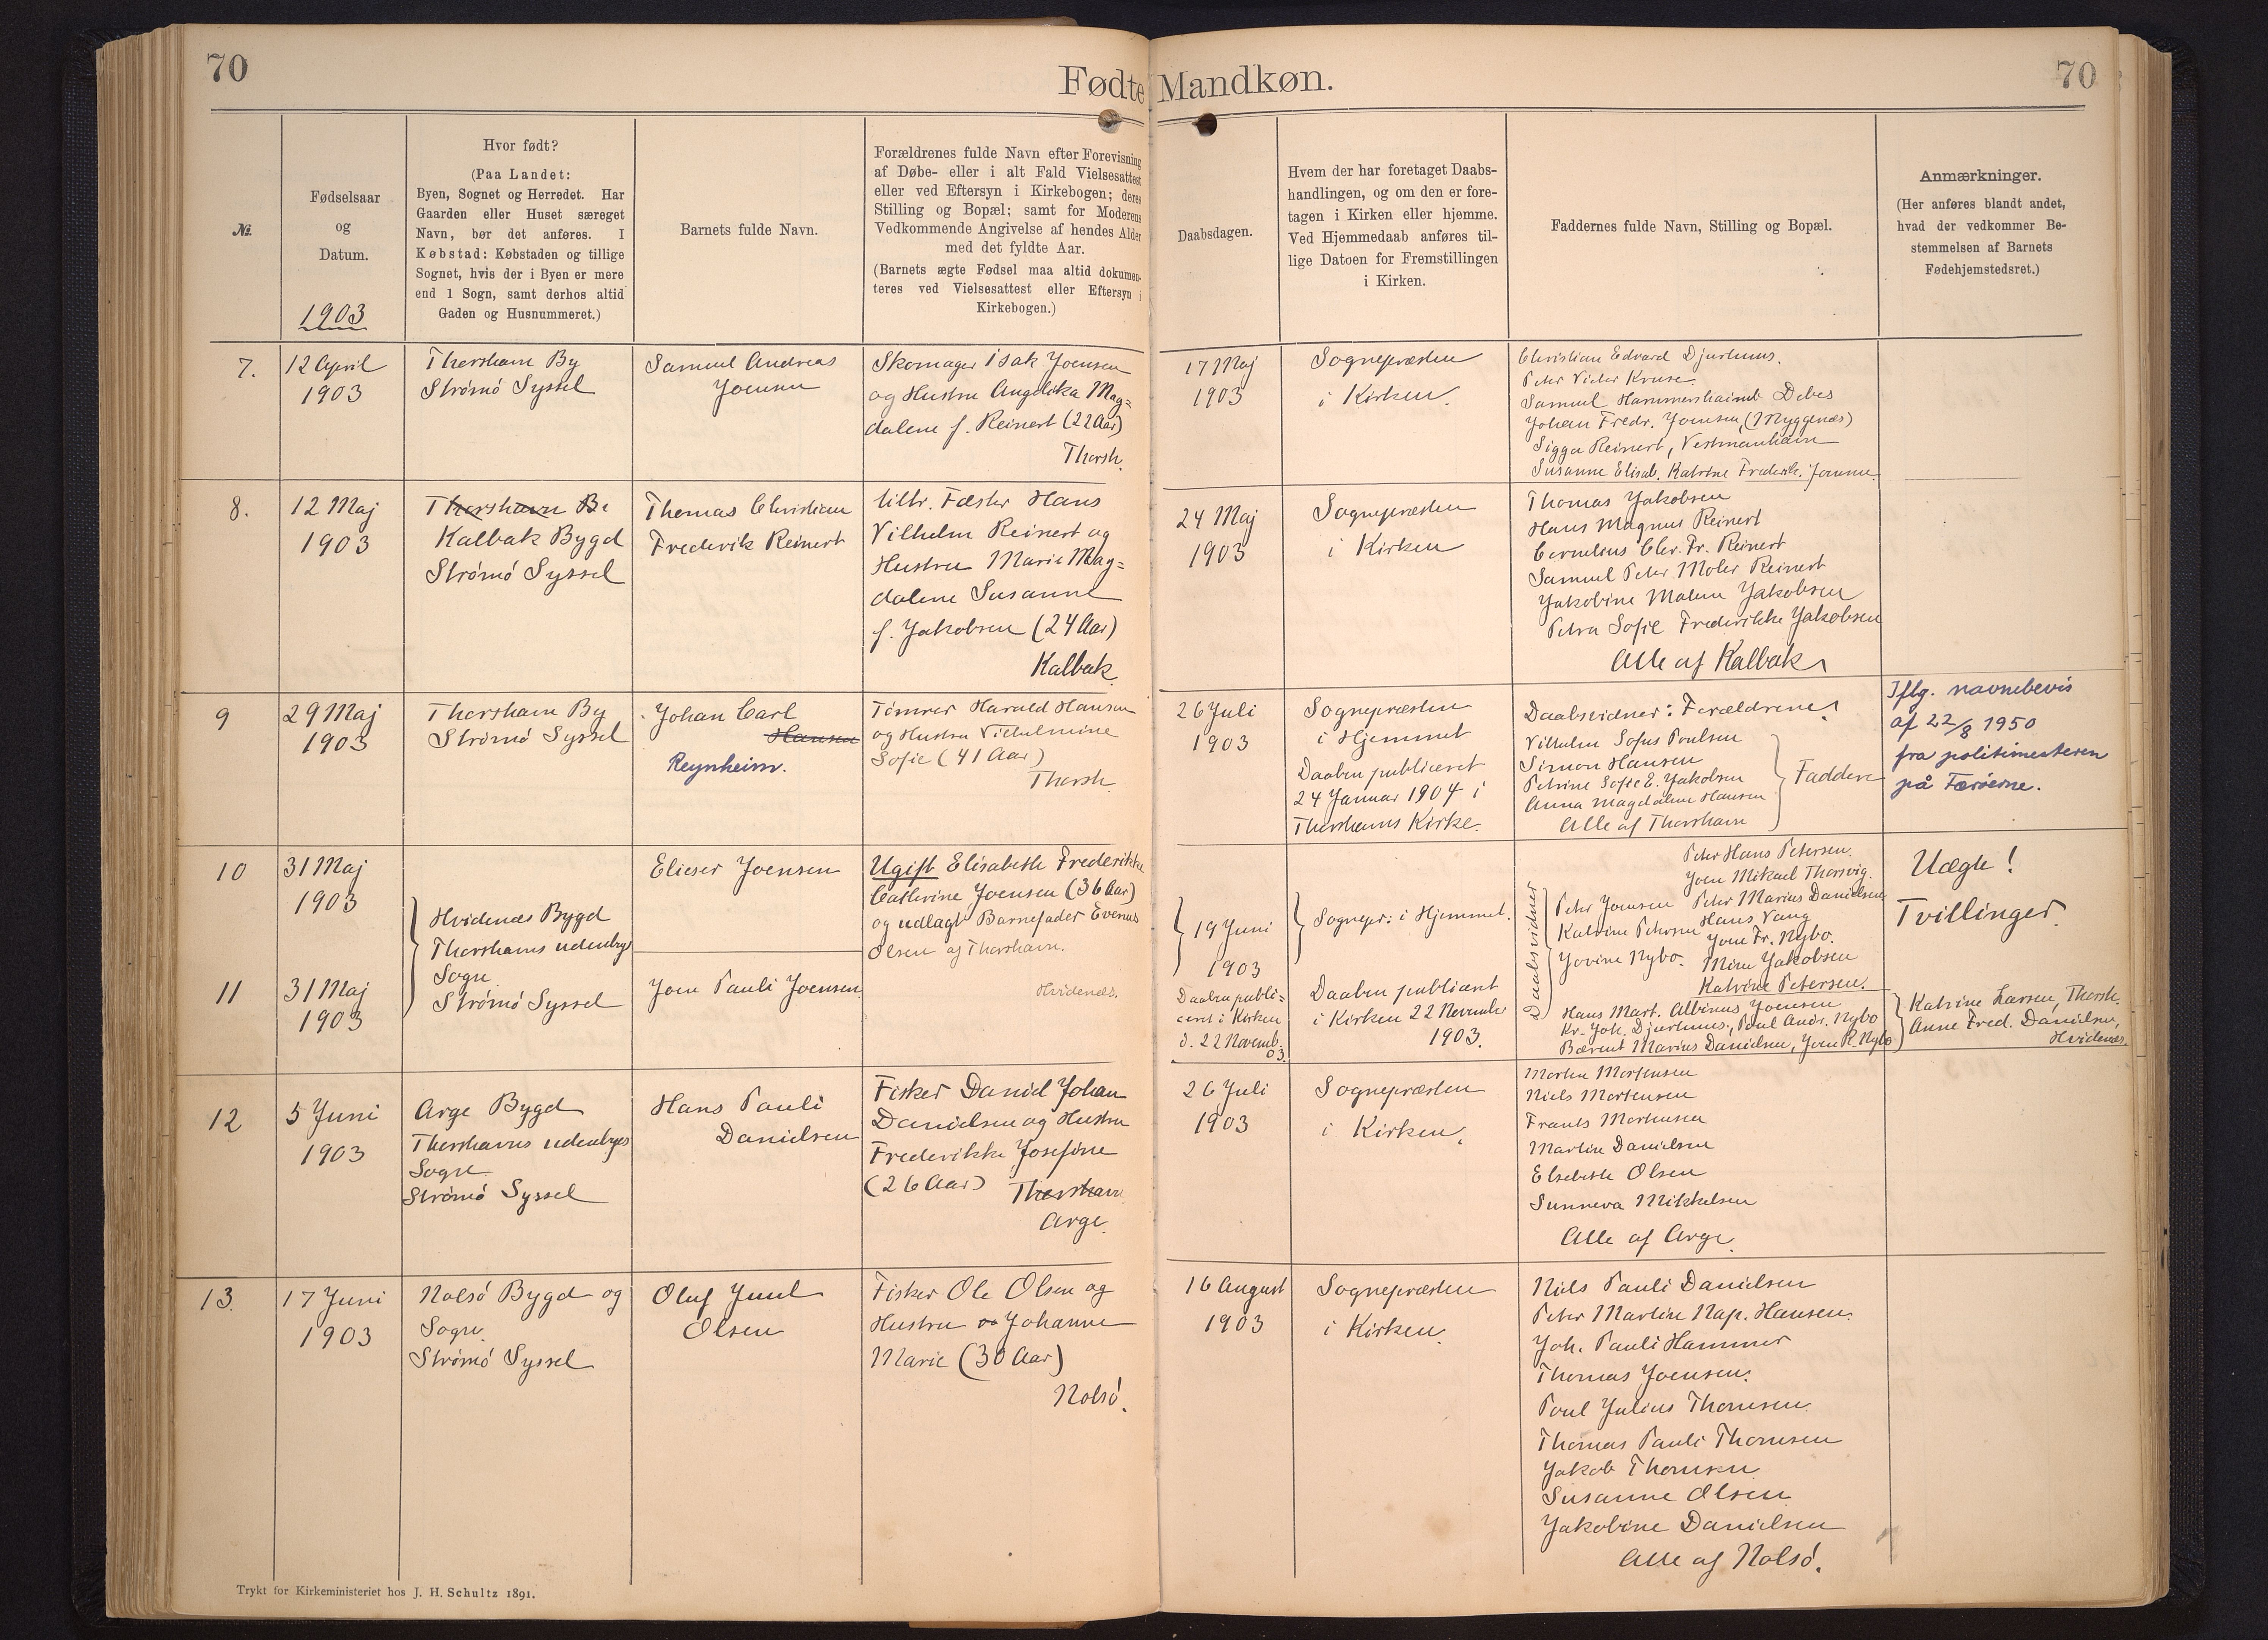 70
Fødte Mandkøn.
70
№.
Fødselsaar
og
Datum.
1903
Hvor født?
(Paa Landet:
Byen, Sognet og Herredet. Har
Gaarden eller Huset særeget
Navn, bør det anføres. I
Købstad: Købstaden og tillige
Sognet, hvis der i Byen er mere
end 1 Sogn, samt derhos altid
Gaden og Husnummeret.)
Barnets fulde Navn.
Forældrenes fulde Navn efter Forevisning
af Døbe- eller i alt Fald Vielsesattest
eller ved Eftersyn i Kirkebogen; deres
Stilling og Bopæl; samt for Moderens
Vedkommende Angivelse af hendes Alder
med det fyldte Aar.
(Barnets ægte Fødsel maa altid dokumen-
teres ved Vielsesattest eller Eftersyn i
Kirkebogen.)
Daabsdagen.
Hvem der har foretaget Daabs-
handlingen, og om den er fore-
tagen i Kirken eller hjemme.
Ved Hjemmedaab anføres til-
lige Datoen for Fremstillingen
i Kirken.
Faddernes fulde Navn, Stilling og Bopæl.
Anmærkninger.
(Her anføres blandt andet,
hvad der vedkommer Be-
stemmelsen af Barnets
Fødehjemstedsret.)
7.
12 April
1903
Thorshavn By
Strömö Syssel
Samuel Andreas
Joensen
Skomager Isak Joensen
og Hustru Angelika Mag=
dalene f. Reinert (22 Aar)
Thorsh.
17 Maj
1903
Sognepræsten
i Kirken.
Christian Edvard Djurhuus.
Peter Victor Kruse.
Samuel Hammershaimb Debes
Johan Fredr. Joensen, (Myggenæs)
Sigga Reinert, Vestmanhavn
Susanne Elisab. Katrine Frederik. Joensen
8.
12 Maj
1903
Thorshavn By
Kalbak Bygd
Strömö Syssel
Thomas Christian
Frederik Reinert
Fæster Hans
Vilhelm Reinert og
Hustru Marie Mag=
dalene Susanne
f. Jakobsen (24 Aar)
Kalbak.
24 Maj
1903
Sognepræsten
i Kirken
Thomas Jakobsen
Hans Magnus Reinert
Cornelius Chr. Fr. Reinert
Samuel Peter Moler Reinert
Jakobine Malene Jakobsen
Petra Sofie Frederikke Jakobsen
Alle af Kalbak
9
29 Maj
1903
Thorshavn By
Strömö Syssel
Johan Carl
Hansen
Reynheim.
Tömrer Harald Hansen
og Hustru Vilhelmine
Sofie (41 Aar)
Thorsh.
26 Juli
1903
Sognepræsten
i Hjemmet
Daaben publiceret
24 Januar 1904 i
Thorshavns Kirke.
Daabsvidner: Forældrene.
Vilhelm Sofus Poulsen
Simon Hansen
Petrine Sofie E. Jakobsen
Anna Magdalene Hansen
Alle af Thorshavn
Faddere
Iflg. navnebevis
af 22/8 1950
fra politimesteren
på Færöerne.
10
31 Maj
1903
11
31 Maj
1903
Hvidenæs Bygd
Thorshavns udenbys
Sogn
Strömö Syssel
Elieser Joensen
Joen Pauli Joensen
Ugift Elisabeth Frederikke
Cathrine Joensen (36 Aar)
og udlagt Barnefader Evenus
Olsen af Thorshavn.
Hvidenæs.
19 Juni
1903
Daaben publi=
ceret i Kirken
d. 22 Novemb.
03.
Sognepr: i Hjemmet.
Daaben publiceret
i Kirken 22 November
1903.
Daabsvidner
Peter Joensen
Katrine Petersen
Jovine Nybo.
Peter Hans Petersen.
Joen Mikael Thorsvig.
Peter Marius Danielsen
Hans Vang
Joen Fr. Nybo.
Mine Jakobsen
Katrine Petersen.
Hans Mart. Albinus Joensen
Kr. Joh. Djurhuus, Poul Andr. Nybo
Bærent Marius Danielsen, Joen R. Nybo
Uægte!
Tvillinger.
Katrine Larsen, Thorsh.
Anne Fred. Danielsen,
Hvidenæs.
12
5 Juni
1903
Arge Bygd
Thorshavns udenbyes
Sogn
Strömö Syssel
Hans Pauli
Danielsen
Fisker Daniel Johan
Danielsen og Hustru
Frederikke Josefine
(26 Aar) Thorshavn
Arge.
26 Juli
1903
Sognepræsten
i Kirken.
Morten Mortensen
Niels Mortensen
Frants Mortensen
Martin Danielsen
Elsebeth Olsen
Sunneva Mikkelsen
Alle af Arge.
13.
17 Juni
1903
Nolsö Bygd og
Sogn
Strömö Syssel
Oluf Juul
Olsen
Fisker Ole Olsen og
Hustru Johanne
Marie (30 Aar)
Nolsö.
16 August
1903
Sognepræsten
i Kirken.
Niels Pauli Danielsen
Peter Martin Nap. Hansen.
Joh. Pauli Hammer
Thomas Joensen.
Poul Julius Thomsen.
Thomas Pauli Thomsen
Jakob Thomsen
Susanne Olsen
Jakobine Danielsen
Alle af Nolsö.
Trykt for Kirkeministeriet hos J. H. Schultz 1891.